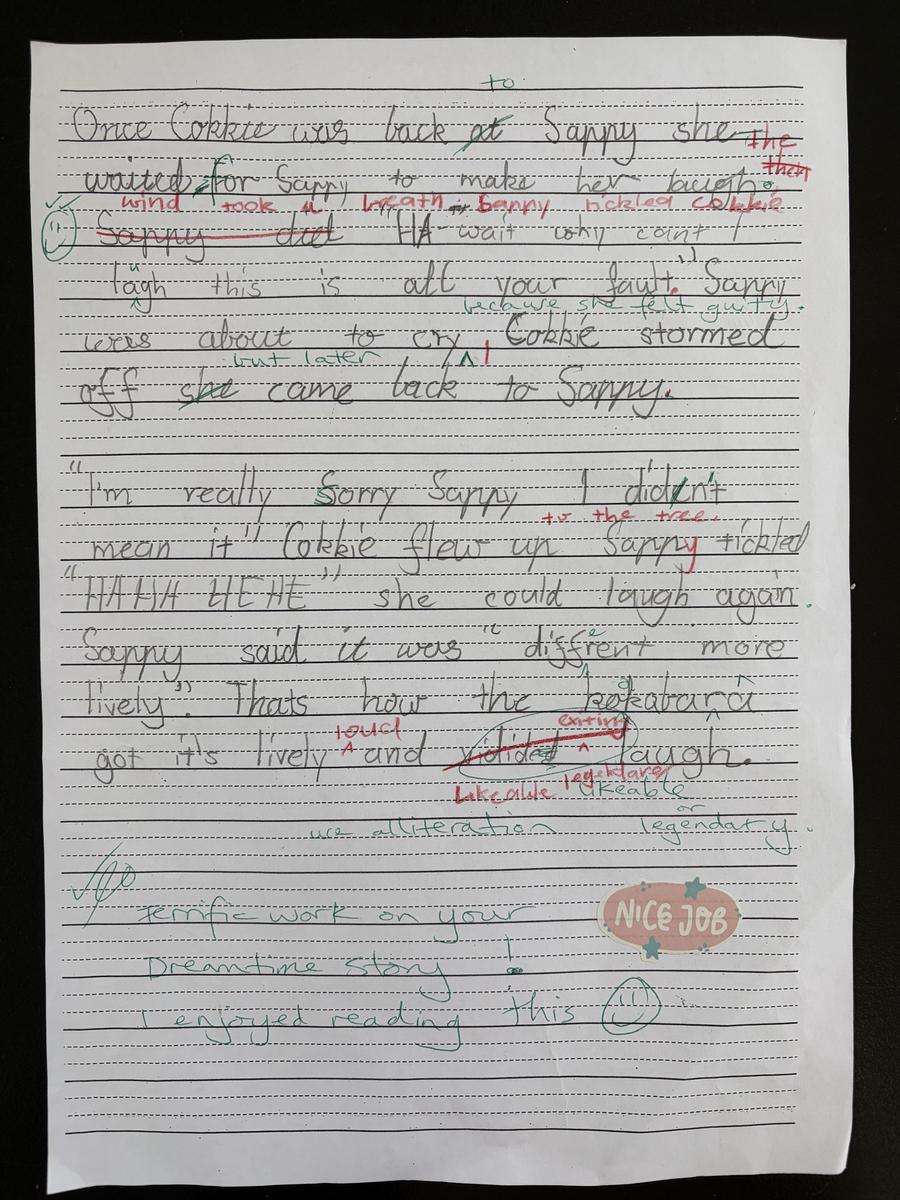 to
Once Cokkie was back at Sappy she
the
then
waited for Sappy to make her laugh.
wind took a breath Sappy tickled cokkie
Sappy did HA-wait why cant I
u
lagh this is all your fault." Sappy
because she felt guity.
was about to cry, Cokkie stormed
but later
off she came back to Sappy.
"I'm really Sorry Sappy I didn't
to the tree.
mean it" Cokkie flew up Sappy tickled
"HAHA HEHE" she could laugh again.
Sappy said it was "diffrent more
e
lively". Thats how the kokabara
loud exiting
got it's lively and laugh.
Likeable legendary likeable
or
use alliteration legendary.
Terrific work on your
NICE JOB
Dreamtime story!
I enjoyed reading this